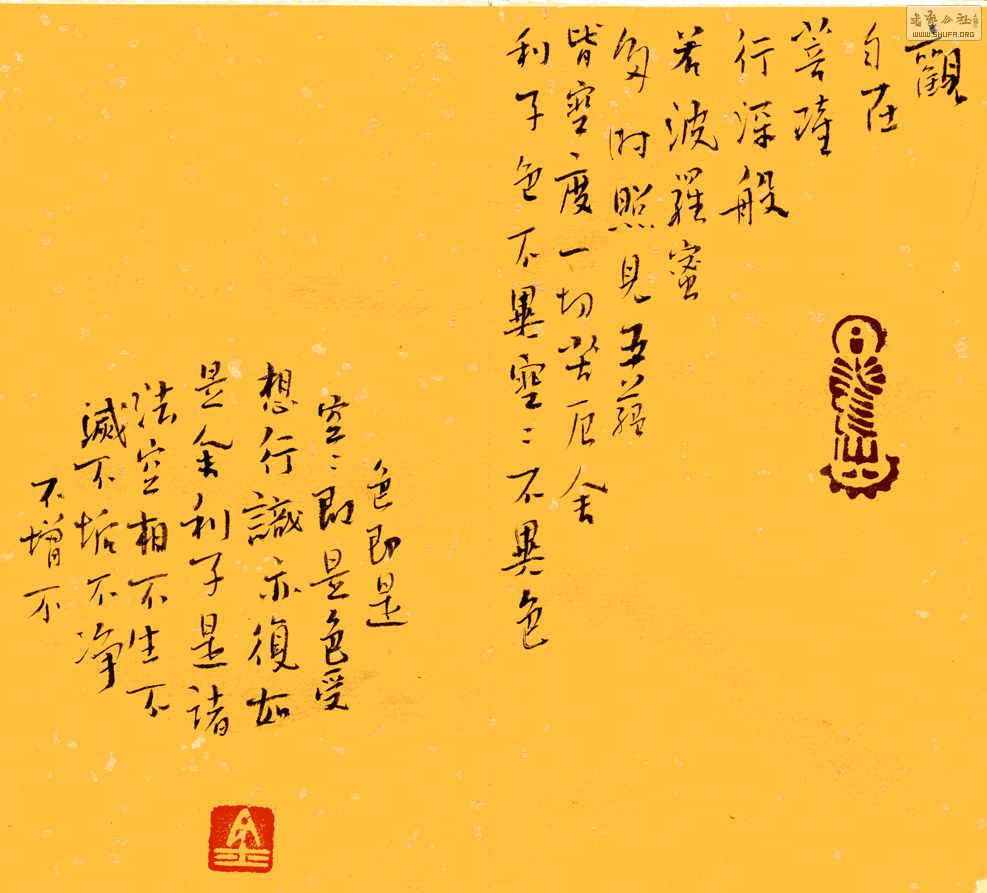 觀
自在
菩薩
行深般
若波羅蜜
多时照見五蘊
皆空度一切苦厄舍
利子色不異空〻不異色
色即是
空〻即是色受
想行識亦復如
是舍利子是諸
法空相不生不
滅不垢不净
不增不
書藝公社
WWW.SHUFA.ORG